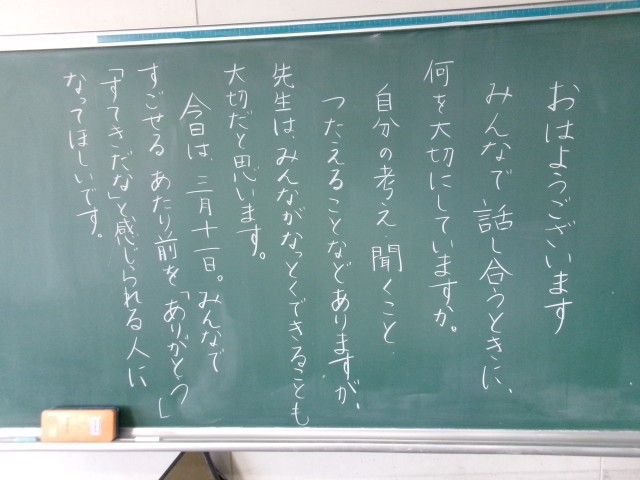 おはようございます
みんなで話し合うときに、
何を大切にしていますか。
自分の考え 聞くこと
つたえることなどありますが、
先生は、みんながなっとくできることも
大切だと思います。
今日は、三月十一日。みんなで
すごせる あたり前を「ありがとう」
「すてきだな」と感じられる人に
なってほしいです。